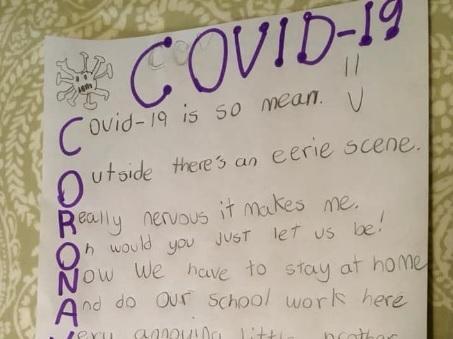 COVID-19
Covid-19 is so mean.
Outside there's an eerie scene.
Really nervous it makes me.
Oh would you just let us be!
Now We have to stay at home
And do our school work here
Very annoying little brother